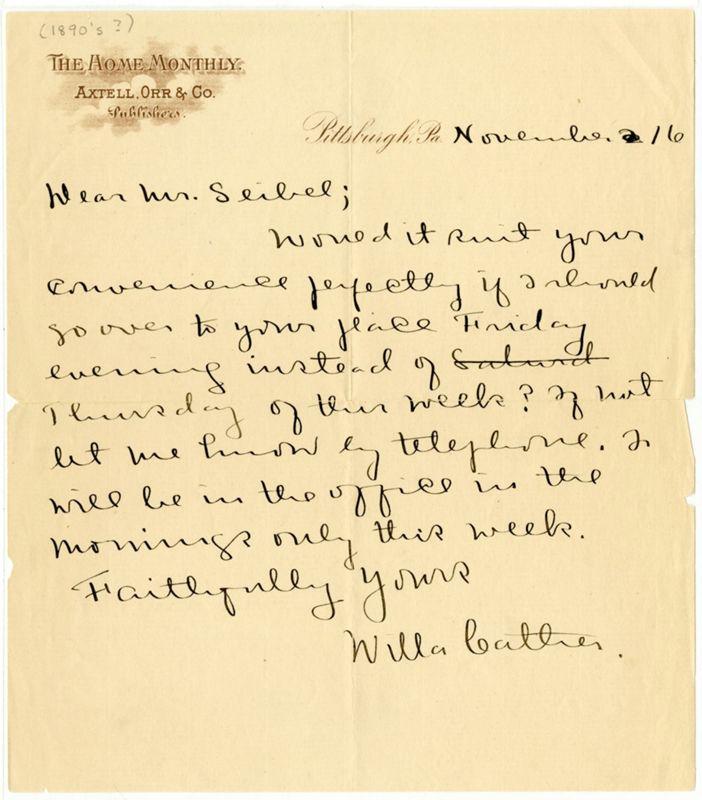 (1890's?)
THE HOME MONTHLY.
AXTELL, ORR & CO.
Publishers.
Pittsburgh, Pa. November 16
Dear Mr. Seibel;
Would it suit your
convenience perfectly if I should
go over to your place Friday
evening instead of Saturd
Thursday of this week? If not
let me know by telephone. I
will be in the office in the
mornings only this week.
Faithfully Yours
Willa Cather.